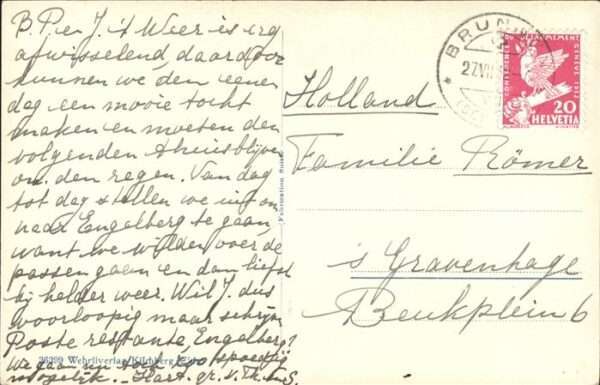 B. P. en J. 't Weer is erg
afwisselend daardoor
kunnen we den eenen
dag een mooie tocht
maken en moeten den
volgenden thuisblijven
om den regen. Van dag
tot dag stellen we uit om
naar Engelberg te gaan,
want we wilden over de
passen gaan en dan liefst
bij helder weer. Wil J. dus
voorloopig maar schrijven
Poste restante, Engelberg?
We gaan er toch zoo spoedig
mogelijk. - Hart. gr. v. Th. en S.
36399 Wehrliverlag, Kilchberg
Fabrication Suisse
BRUNIG
27.VII
CONFERENCE DU DESARMEMENT
GENEVE 1932
20
HELVETIA
Holland
Familie Römer
's Gravenhage
Beukplein 6